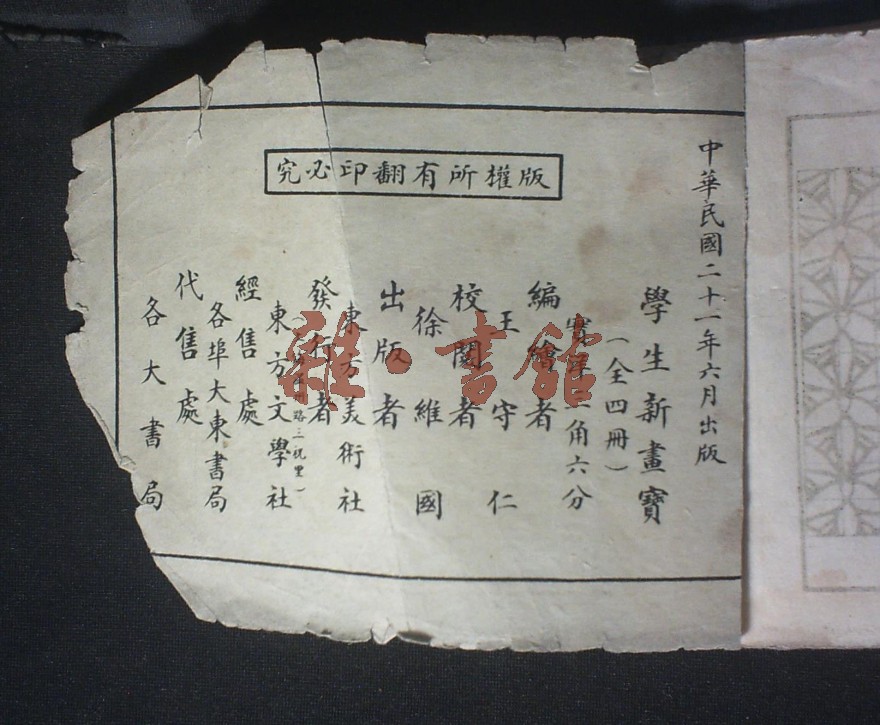 版權所有翻印必究
中華民國二十一年六月出版
學生新畫寶
(全四冊)
實洋三角六分
編繪者
王守仁
校閱者
徐維國
出版者
東方美術社
發行者
路三祝里)
東方文學社
經售處
各埠大東書局
代售處
各大書局
雜·書館